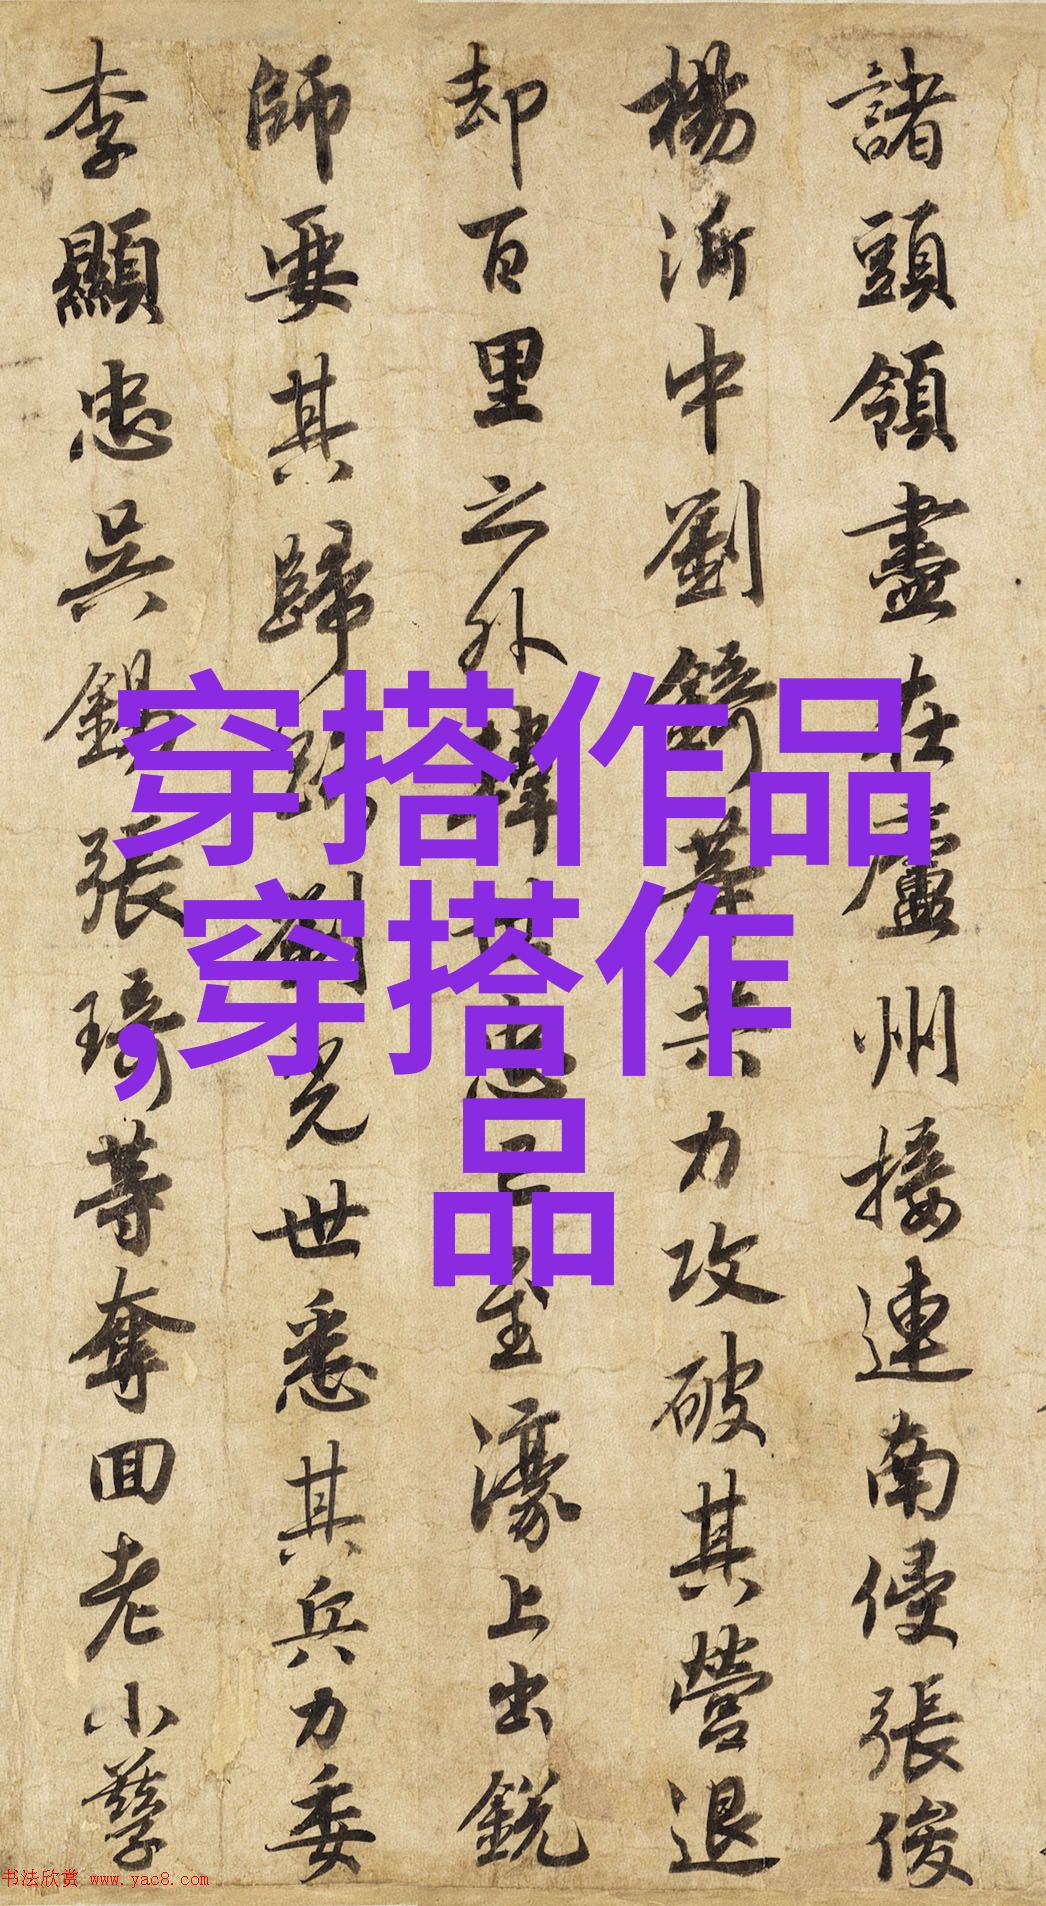 諸頭領盡在廬州接連南侵張俊
楊沂中劉錡等共力攻破其營退
却百里之外韓世忠已至濠上出銳
師要其歸路劉光世悉其兵力委
李顯忠吳錫張琦等奪回老小孳
穿搭作品
,穿搭作
品
书法欣赏 www.yac8.com